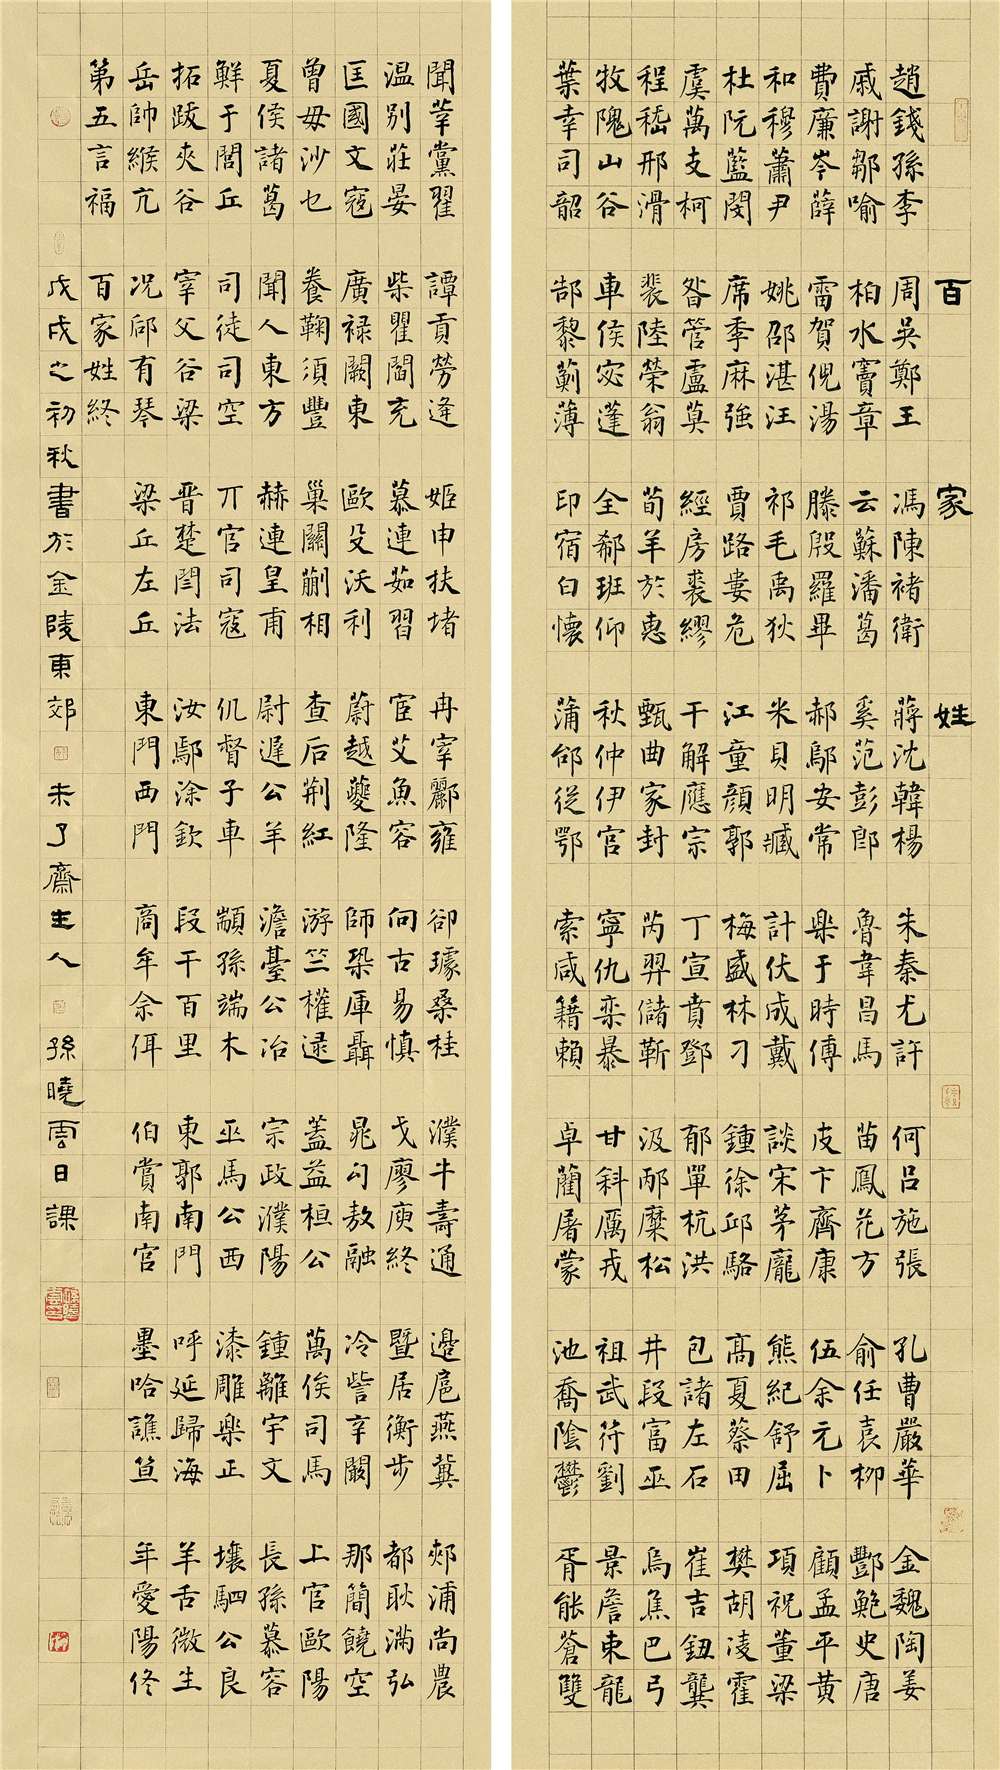 百家姓
趙錢孫李 周吳鄭王 馮陳褚衛 蔣沈韓楊 朱秦尤許 何呂施張 孔曹嚴華 金魏陶姜
戚謝鄒喻 柏水竇章 云蘇潘葛 奚范彭郎 魯韋昌馬 苗鳳花方 俞任袁柳 酆鮑史唐
費廉岑薛 雷賀倪湯 滕殷羅畢 郝鄔安常 樂于時傅 皮卞齊康 伍余元卜 顧孟平黃
和穆蕭尹 姚邵湛汪 祁毛禹狄 米貝明臧 計伏成戴 談宋茅龐 熊紀舒屈 項祝董梁
杜阮藍閔 席季麻強 賈路婁危 江童顏郭 梅盛林刁 鍾徐邱駱 高夏蔡田 樊胡凌霍
虞萬支柯 昝管盧莫 經房裘繆 干解應宗 丁宣賁鄧 郁單杭洪 包諸左石 崔吉鈕龔
程嵇邢滑 裴陸榮翁 荀羊於惠 甄曲家封 芮羿儲靳 汲邴糜松 井段富巫 烏焦巴弓
牧隗山谷 車侯宓蓬 全郗班仰 秋仲伊官 寧仇欒暴 甘斜厲戎 祖武符劉 景詹束龍
葉幸司韶 郜黎薊薄 印宿白懷 蒲邰從鄂 索咸籍賴 卓藺屠蒙 池喬陰鬱 胥能蒼雙
聞莘黨翟 譚貢勞逄 姬申扶堵 冉宰酈雍 卻璩桑桂 濮牛壽通 邊扈燕冀 郟浦尚農
温別莊晏 柴瞿閻充 慕連茹習 宦艾魚容 向古易慎 戈廖庾終 暨居衡步 都耿滿弘
匡國文寇 廣祿闕東 歐殳沃利 蔚越夔隆 師鞏厙聶 晁勾敖融 冷訾辛闞 那簡饒空
曾毋沙乜 養鞠須豐 巢關蒯相 查后荊紅 游竺權逯 蓋益桓公 萬俟司馬 上官歐陽
夏侯諸葛 聞人東方 赫連皇甫 尉遲公羊 澹臺公冶 宗政濮陽 鍾離宇文 長孫慕容
鮮于閭丘 司徒司空 丌官司寇 仉督子車 顓孫端木 巫馬公西 漆雕樂正 壤駟公良
拓跋夾谷 宰父谷梁 晋楚閆法 汝鄢涂欽 段干百里 東郭南門 呼延歸海 羊舌微生
岳帥緱亢 况郈有琴 梁丘左丘 東門西門 商牟佘佴 伯賞南宮 墨哈譙笪 年愛陽佟
第五言福 百家姓終
戊戌之初秋書於金陵東郊 未了齋主人 孫曉雲日課